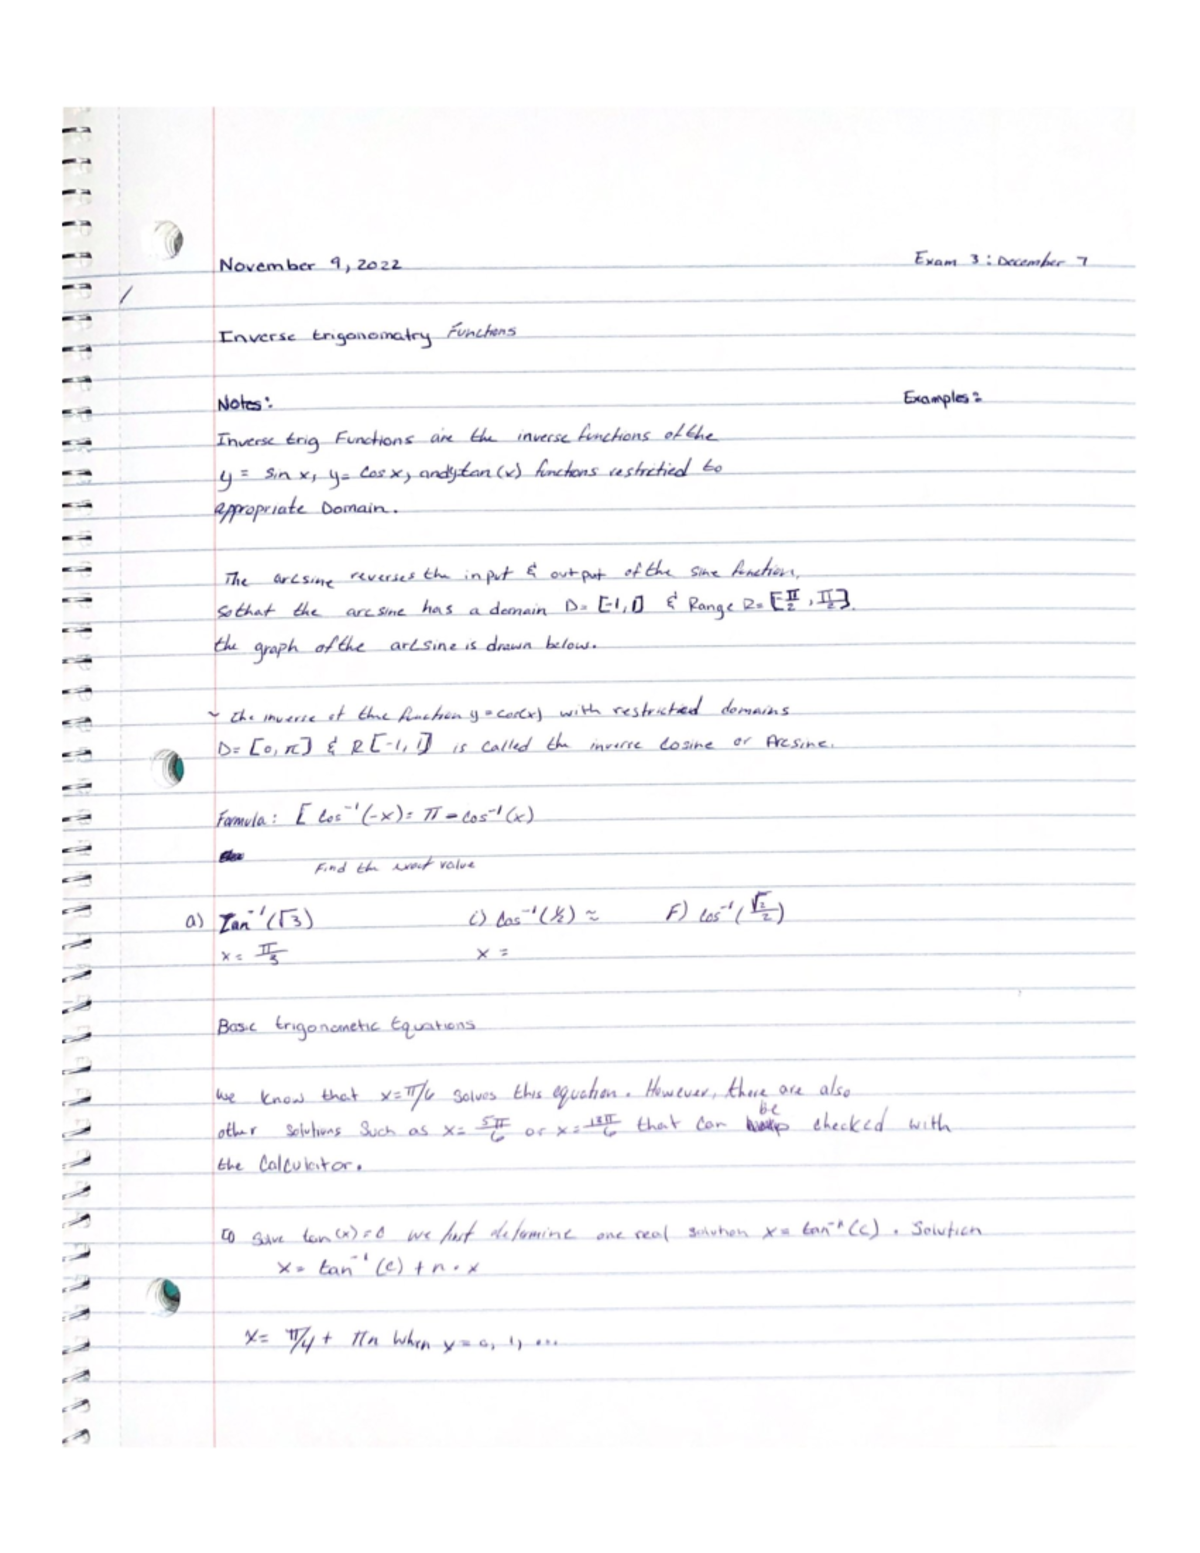 November 9, 2022
Exam 3: December 7
Inverse trigonomatry Functions
Notes:
Examples:
Inverse trig Functions are the inverse functions of the
y = sin x, y = cos x, and y tan (x) functions restrictied to
appropriate Domain.
The arcsine reverses the input & output of the sine function,
so that the arcsine has a domain D= [-1, 1] & Range R= [π/2, π/2].
the graph of the arcsine is drawn below.
~ the inverse of the function y = cos(x) with restrictied domains
D= [0, π] & R [-1, 1] is called the inverse cosine or Arcsine.
Formula: [ cos⁻¹(-x) = π - cos⁻¹(x)
Find the exact value
a) Tan⁻¹(√3) i) cos⁻¹(½) ≈ F) cos⁻¹(√2/2)
x = π/3 x =
Basic trigonometic Equations
we know that x=π/6 solves this equation. However, there are also
other solutions such as x= 5π/6 or x= 13π/6 that can be checked with
the calculator.
solve tan(x) = we first determine one real solution x= tan⁻¹(c). Solution
x= tan⁻¹(c) + n · x
x= π/4 + πn when y = 0, 1, ...